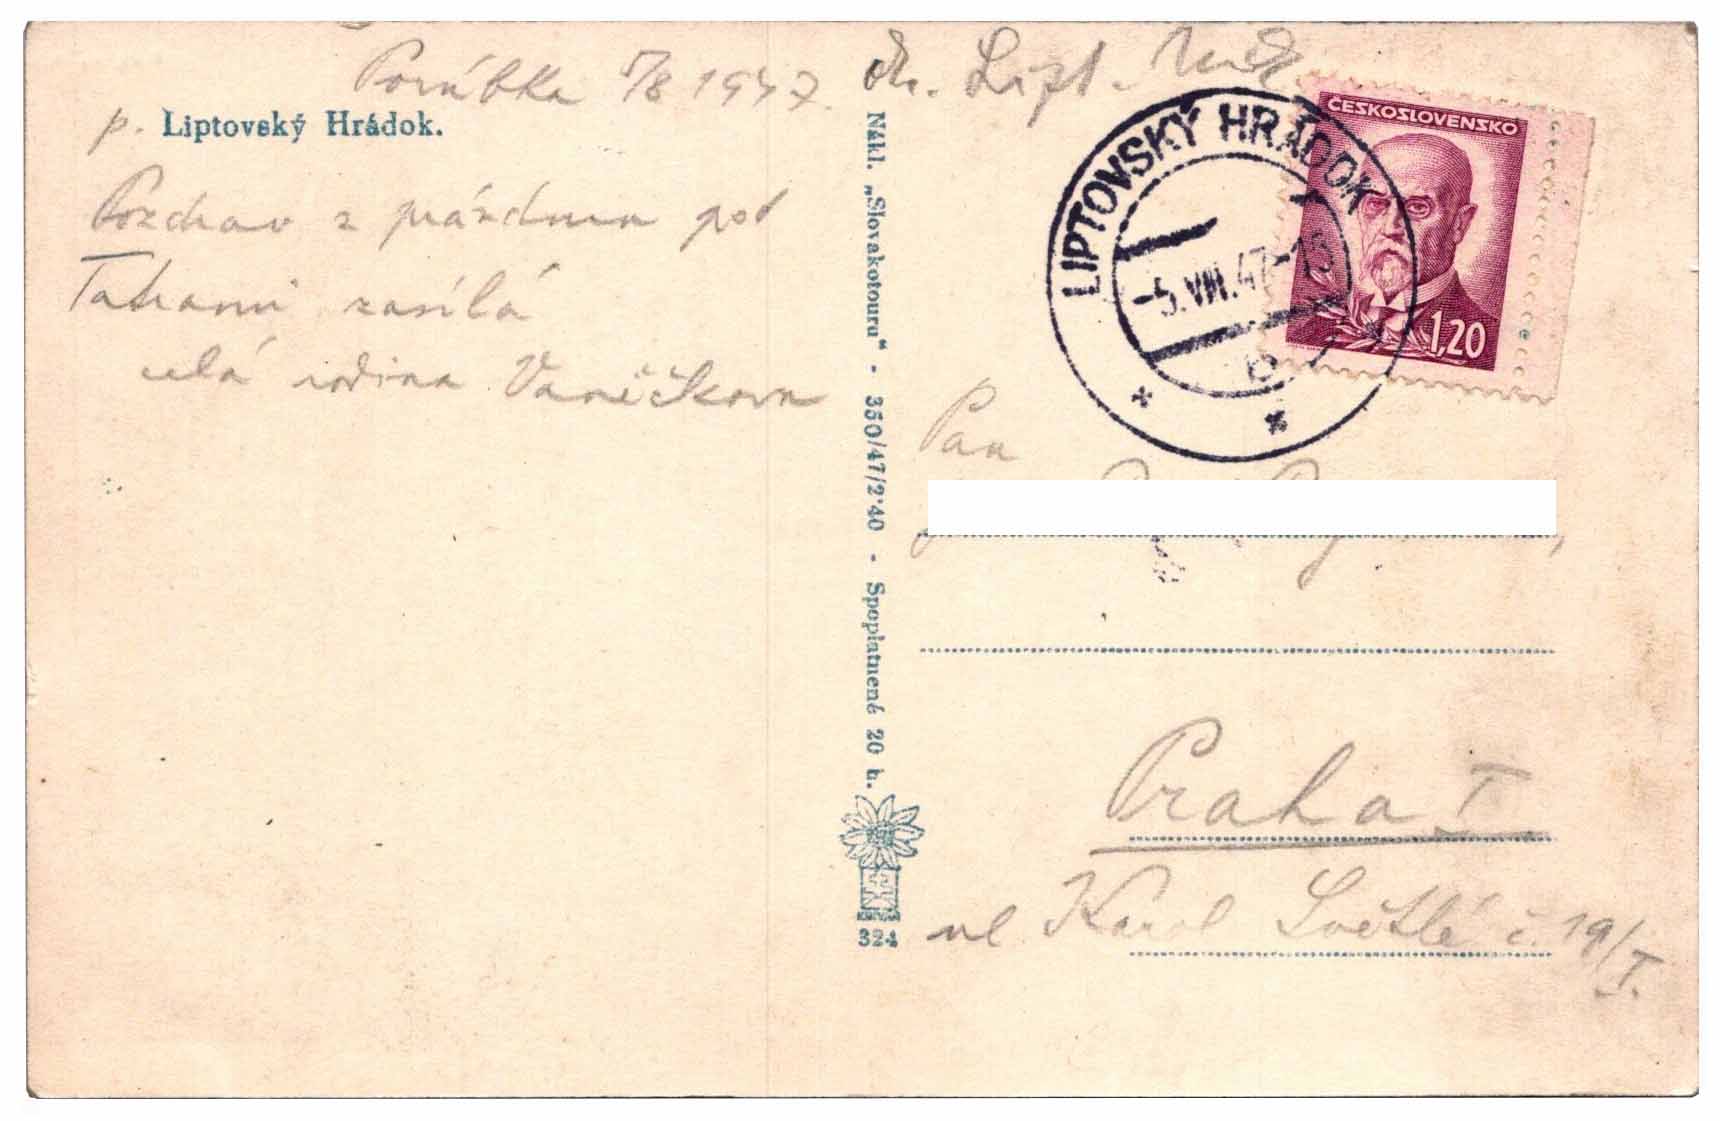 Porúbka 5/8 1947. ok. Lipt.
p. Liptovský Hrádok.
Pozdrav z prázdnin pod
Tatrami zasílá
celá rodina Vaněčkova
Nákl. „Slovakotouru“ - 350/47/2·40 - Spoplatnené 20 h.
324
LIPTOVSKÝ HRÁDOK
-5.VIII.47-16
b
ČESKOSLOVENSKO
1,20
Pan
Praha I
ul Karol Světlé č. 19/I.